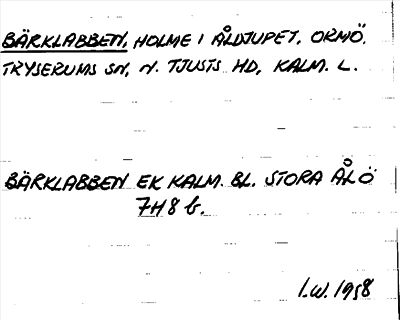 BÄRKLABBEN, HOLME I ÅLDJUPET, ORMÖ.
TRYSERUMS SN, N. TJUSTS HD, KALM. L.
BÄRKLABBEN EK KALM. BL. STORA ÅLÖ
7H8 b.
I.W. 1958